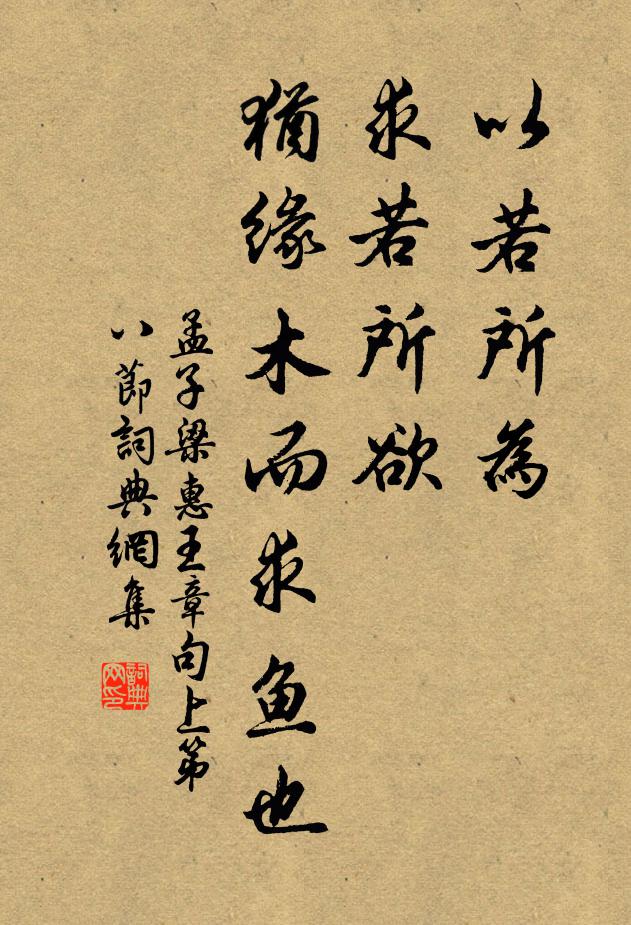 以若所為
求若所欲
猶緣木而求魚也
孟子梁惠王章句上第
八節詞典網集
詞典
网印